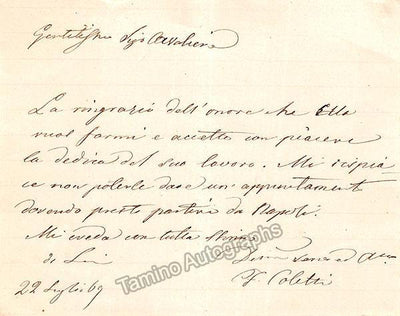 Gentilissmo Sigr Cavaliere
La ringrazio dell'onore che Ella
vuol farmi e accetto con piacere
la dedica del suo lavoro. Mi rispia-
ce non poterle dare un appuntamento
dovendo presto partire da Napoli.
Mi creda con tutta stima
di Lei
Devmo Servo ed
F. Coletti
22 Luglio 69
Tamino Autographs